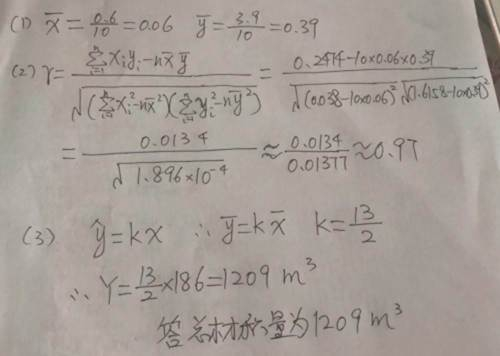 (1) x̄ = 0.6/10 = 0.06 ȳ = 3.9/10 = 0.39
(2) r = (∑ᵢ₌₁ⁿ xᵢyᵢ - nx̄ȳ)/√((∑ᵢ₌₁ⁿ xᵢ² - nx̄²)(∑ᵢ₌₁ⁿ yᵢ² - nȳ²)) = (0.2474 - 10×0.06×0.39)/(√(0.038 - 10×0.06²) √(1.6158 - 10×0.39²))
= 0.0134/√(1.896×10⁻⁴) ≈ 0.0134/0.01377 ≈ 0.97
(3) ŷ = kx ∴ ȳ = kx̄ k = 13/2
∴ Y = 13/2 × 186 = 1209 m³
答总材积量为1209 m³